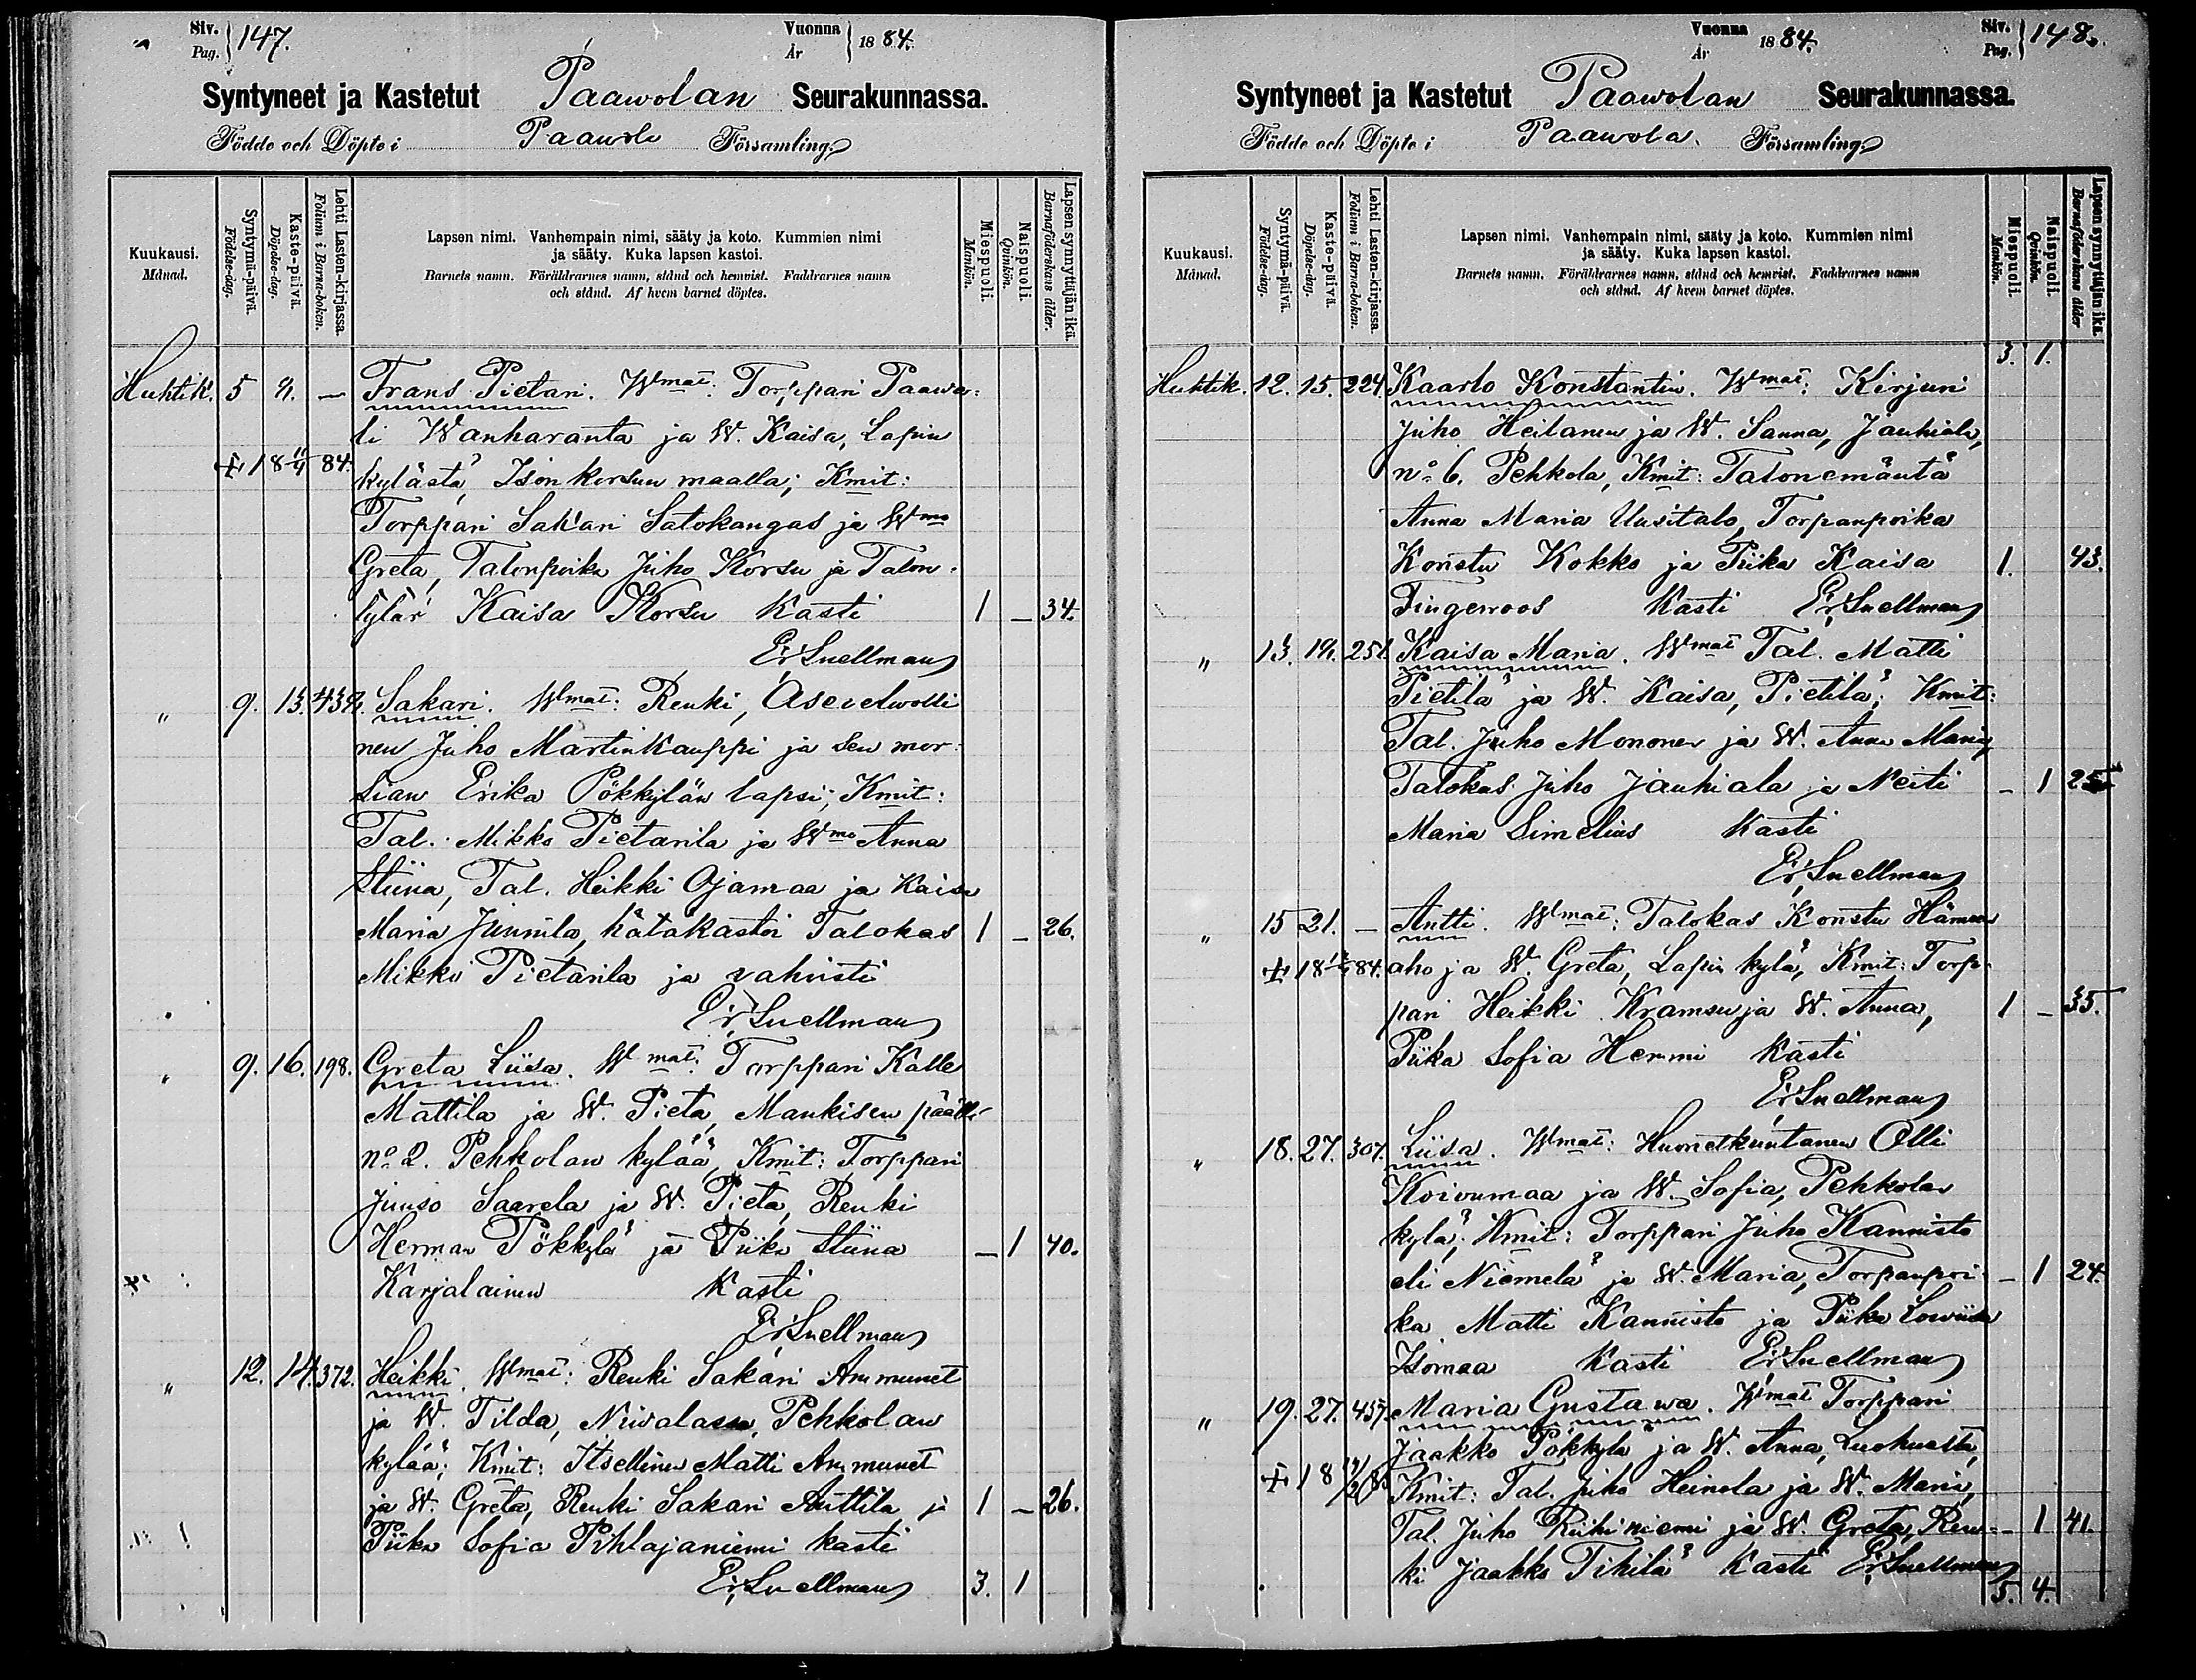 Siv.
Pag. 147.
Vuonna
År 1884.
Syntyneet ja Kastetut Paawolan Seurakunnassa.
Födde och Döpte i Paawola Församling.
Kuukausi.
Månad.
Syntymä-päivä.
Födelse-dag.
Kaste-päivä.
Döpelse-dag.
Lehti Lasten-kirjassa.
Folium i Barna-boken.
Lapsen nimi. Vanhempain nimi, sääty ja koto. Kummien nimi
ja sääty. Kuka lapsen kastoi.
Barnets namn. Föräldrarnes namn, stånd och hemvist. Faddrarnes namn
och stånd. Af hvem barnet döptes.
Miespuoli.
Mankön.
Naispuoli.
Qvinkön.
Lapsen synnyttäjän ikä.
Barnaföderskans ålder.
Huhtik. 5 — Frans Pietari. Wmat: Torppari Paawa-
li Wanharanta ja W. Kaisa, Lapin
kylästä, Ison korsun maalla; Kmit:
Torppari Sakari Satokangas ja Wmo
Greta, Talonpoika Juho Korsu ja Talon-
tytär Kaisa Korsu Kasti 1 — 34.
Er. Snellman
" 9. 13. Sakari. Wmat: Renki, Asevelwolli
nen Juho Martinkauppi ja sen mor-
sian Erika Pökkylän lapsi; Kmit:
Tal. Mikko Pietarila ja Wmo Anna
Stiina, Tal. Heikki Ojamaa ja Kaisa
Maria Junnila, hätäkastoi Talokas 1 — 26.
Mikko Pietarila ja vahvisti
Er. Snellman
" 9. 16. 198. Greta Liisa. Wmat: Torppari Kalle
Mattila ja W. Pieta, Mankisen päällä
no 2. Pehkolan kylää, Kmit: Torppari
Juuso Saarela ja W. Pieta, Renki
Herman Pökkylä ja Piika Stiina — 1 40.
Karjalainen Kasti
Er. Snellman
" 12. 14. 372. Heikki. Wmat: Renki Sakari Ammunet
ja W. Tilda, Niwalassa, Pehkolan
kylää; Kmit: Itsellinen Matti Ammunet
ja W. Greta, Renki Sakari Anttila ja 1 — 26.
Piika Sofia Pihlajaniemi kasti
Er. Snellman 3. 1
Vuonna
År 1884.
Siv.
Pag. 148.
Syntyneet ja Kastetut Paawolan Seurakunnassa.
Födde och Döpte i Paawola. Församling.
Kuukausi.
Månad.
Syntymä-päivä.
Födelse-dag.
Kaste-päivä.
Döpelse-dag.
Lehti Lasten-kirjassa.
Folium i Barna-boken.
Lapsen nimi. Vanhempain nimi, sääty ja koto. Kummien nimi
ja sääty. Kuka lapsen kastoi.
Barnets namn. Föräldrarnes namn, stånd och hemvist. Faddrarnes namn
och stånd. Af hvem barnet döptes.
Miespuoli.
Mankön.
Naispuoli.
Qvinkön.
Lapsen synnyttäjän ikä.
Barnaföderskans ålder
3. 1.
Huhtik. 12. 15. 224. Kaarlo Konstantin. Wmat: Kirjuri
Juho Heilanen ja W. Sanna, Jauhiala,
no 6. Pehkola, Kmit: Talonemäntä
Anna Maria Uusitalo, Torpanpoika
Konstu Kokko ja Piika Kaisa 1. 43.
Tingeroos Kasti Er. Snellman
" 13. 14. 251. Kaisa Maria. Wmat Tal. Matti
Pietilä ja W. Kaisa, Pietilä; Kmit:
Tal. Juho Mononen ja W. Anna Maria,
Talokas Juho Jauhiala ja Neiti — 1 25
Maria Simelius Kasti
Er. Snellman
" 15 21. — Antti. Wmat: Talokas Konstu Hämeen
aho ja W. Greta, Lapin kylä, Kmit: Torp-
pari Heikki Kramsu ja W. Anna, 1 — 35.
Piika Sofia Hermi Kasti
Er. Snellman
" 18. 27. 307. Liisa. Wmat: Huonetkuntanen Olli
Koivumaa ja W. Sofia, Pehkolan
kylä; Kmit: Torppari Juho Kannisto
eli Niemelä ja W. Maria, Torpanpoi- — 1 24.
ka Matti Kannisto ja Piika Lowiisa
Isomaa Kasti Er. Snellman
" 19. 27. 457. Maria Gustawa. Wmat Torppari
Jaakko Pökkylä ja W. Anna, Luohualta,
Kmit: Tal. Juho Heinola ja W. Maria,
Tal. Juho Riihiniemi ja W. Greta, Ren- — 1 41.
ki Jaakko Tihilä Kasti Er. Snellman
5. 4.